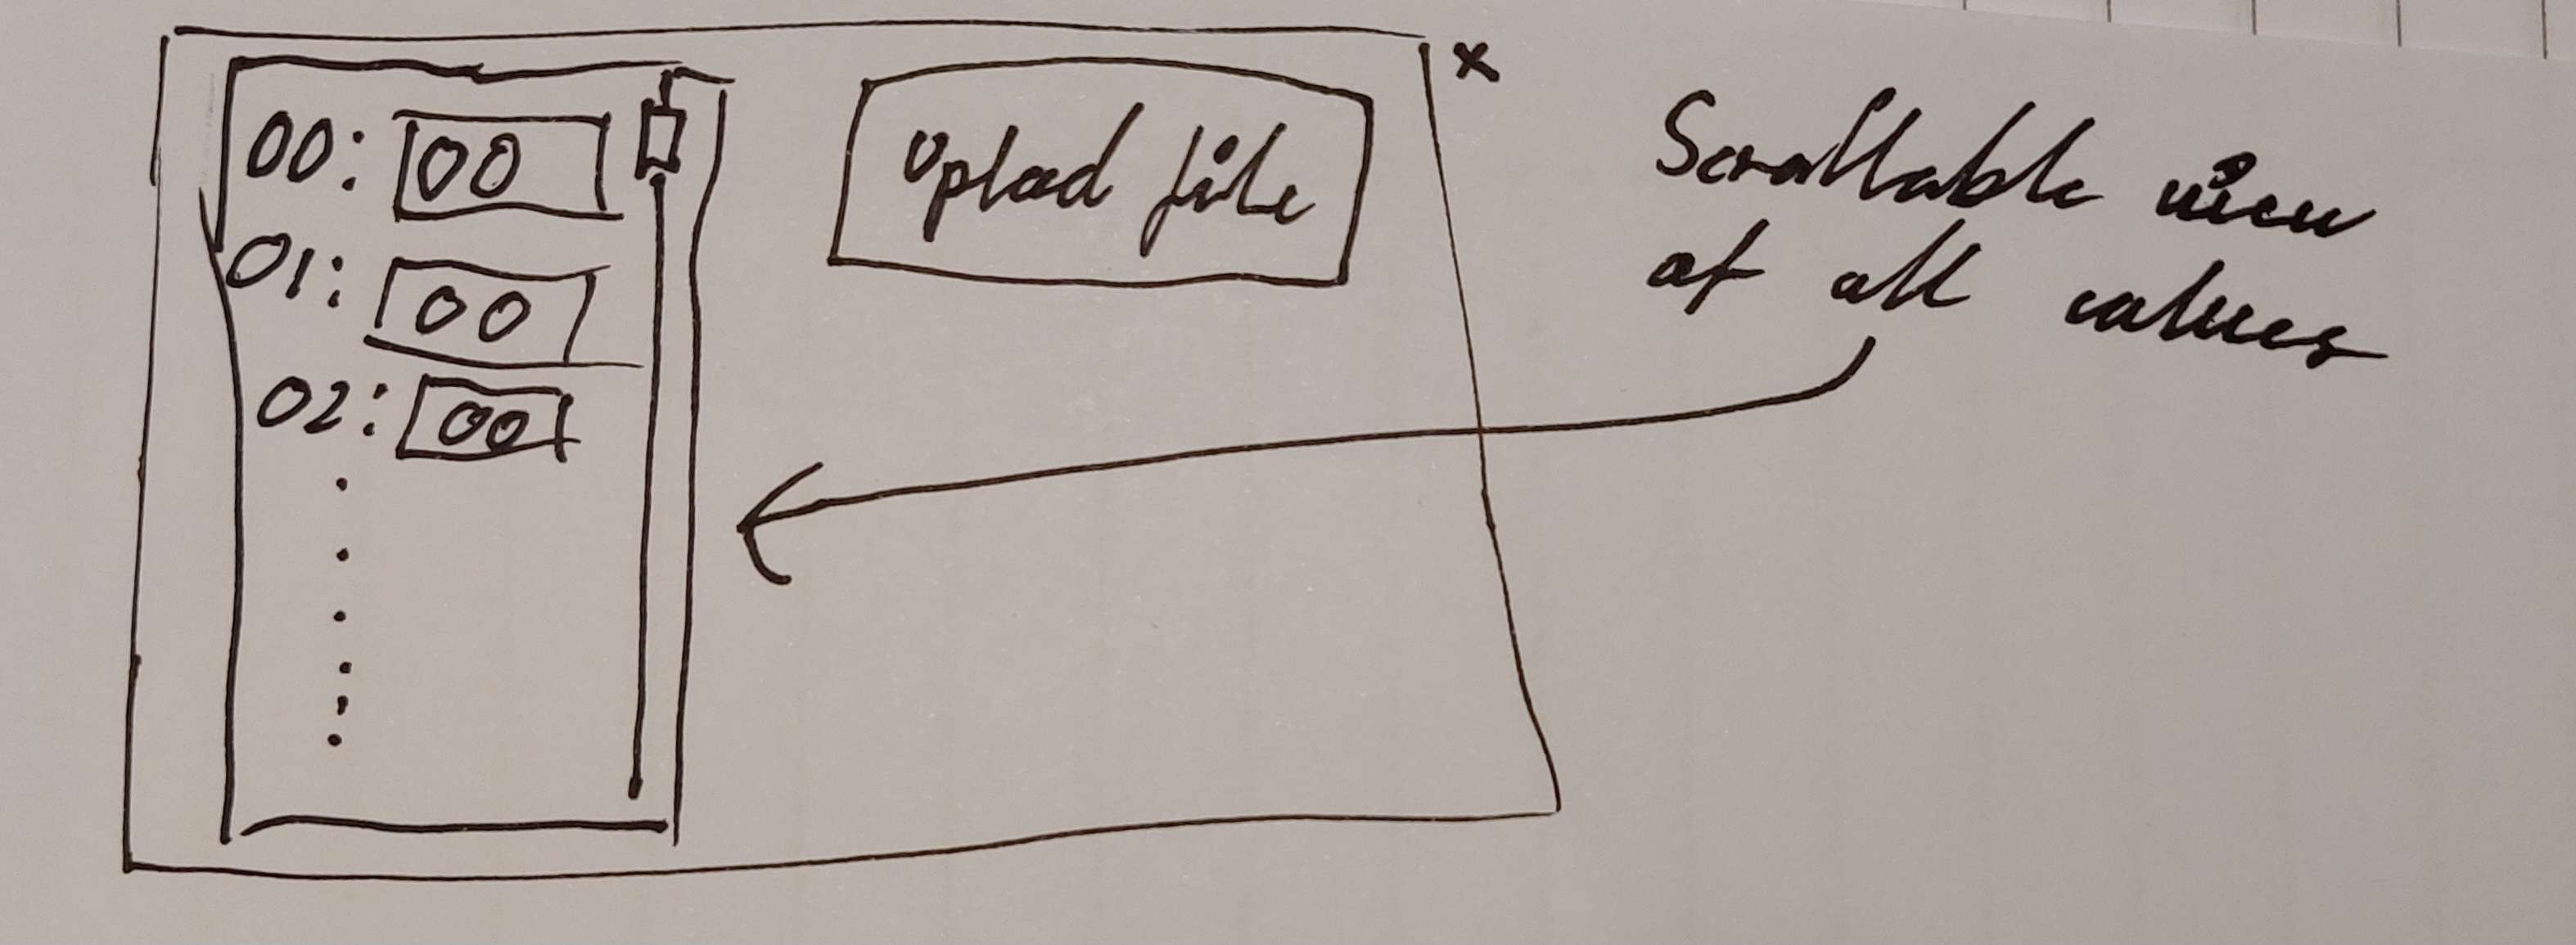 00: 00
01: 00
02: 00
Upload file
x
Scrollable view
of all values